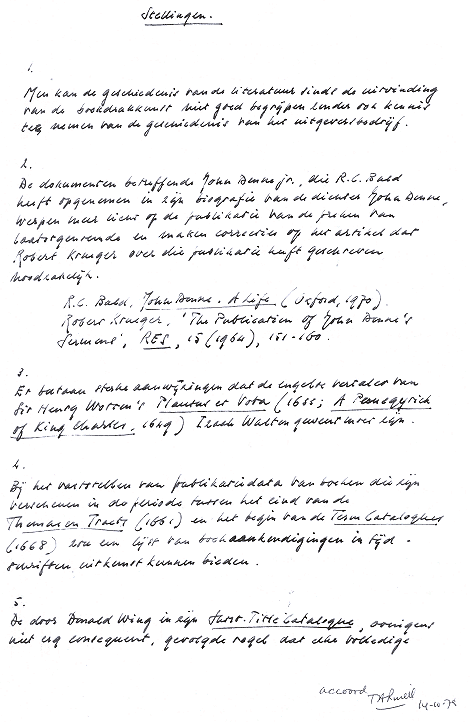 Stellingen.
1.
Men kan de geschiedenis van de literatuur sinds de uitvinding
van de boekdrukkunst niet goed begrijpen zonder ook kennis
te nemen van de geschiedenis van het uitgeversbedrijf.
2.
De dokumenten betreffende John Donne jr., die R.C. Bald
heeft opgenomen in zijn biografie van de dichter John Donne,
werpen meer licht op de publikatie van de preken van
laatstgenoemde en maken correcties op het artikel dat
Robert Krueger over die publikatie heeft geschreven
noodzakelijk.
R.C. Bald, John Donne. A Life. (Oxford, 1970).
Robert Krueger, 'The Publication of John Donne's
Sermons', RES, 15 (1964), 151-160.
3.
Er bestaan sterke aanwijzingen dat de engelse vertaler van
Sir Henry Wotton's Plausus et Vota (1633; A Panegyrick
of King Charles, 1649) Izaak Walton geweest moet zijn.
4.
Bij het vaststellen van publikatiedata van boeken die zijn
verschenen in de periode tussen het eind van de
Thomason Tracts (1661) en het begin van de Term Catalogues
(1668) zou een lijst van boekaankondigingen in tijd-
schriften uitkomst kunnen bieden.
5.
De door Donald Wing in zijn Short-Title Catalogue, overigens
niet erg consequent, gevolgde regel dat elke volledige
accoord
14-10-79